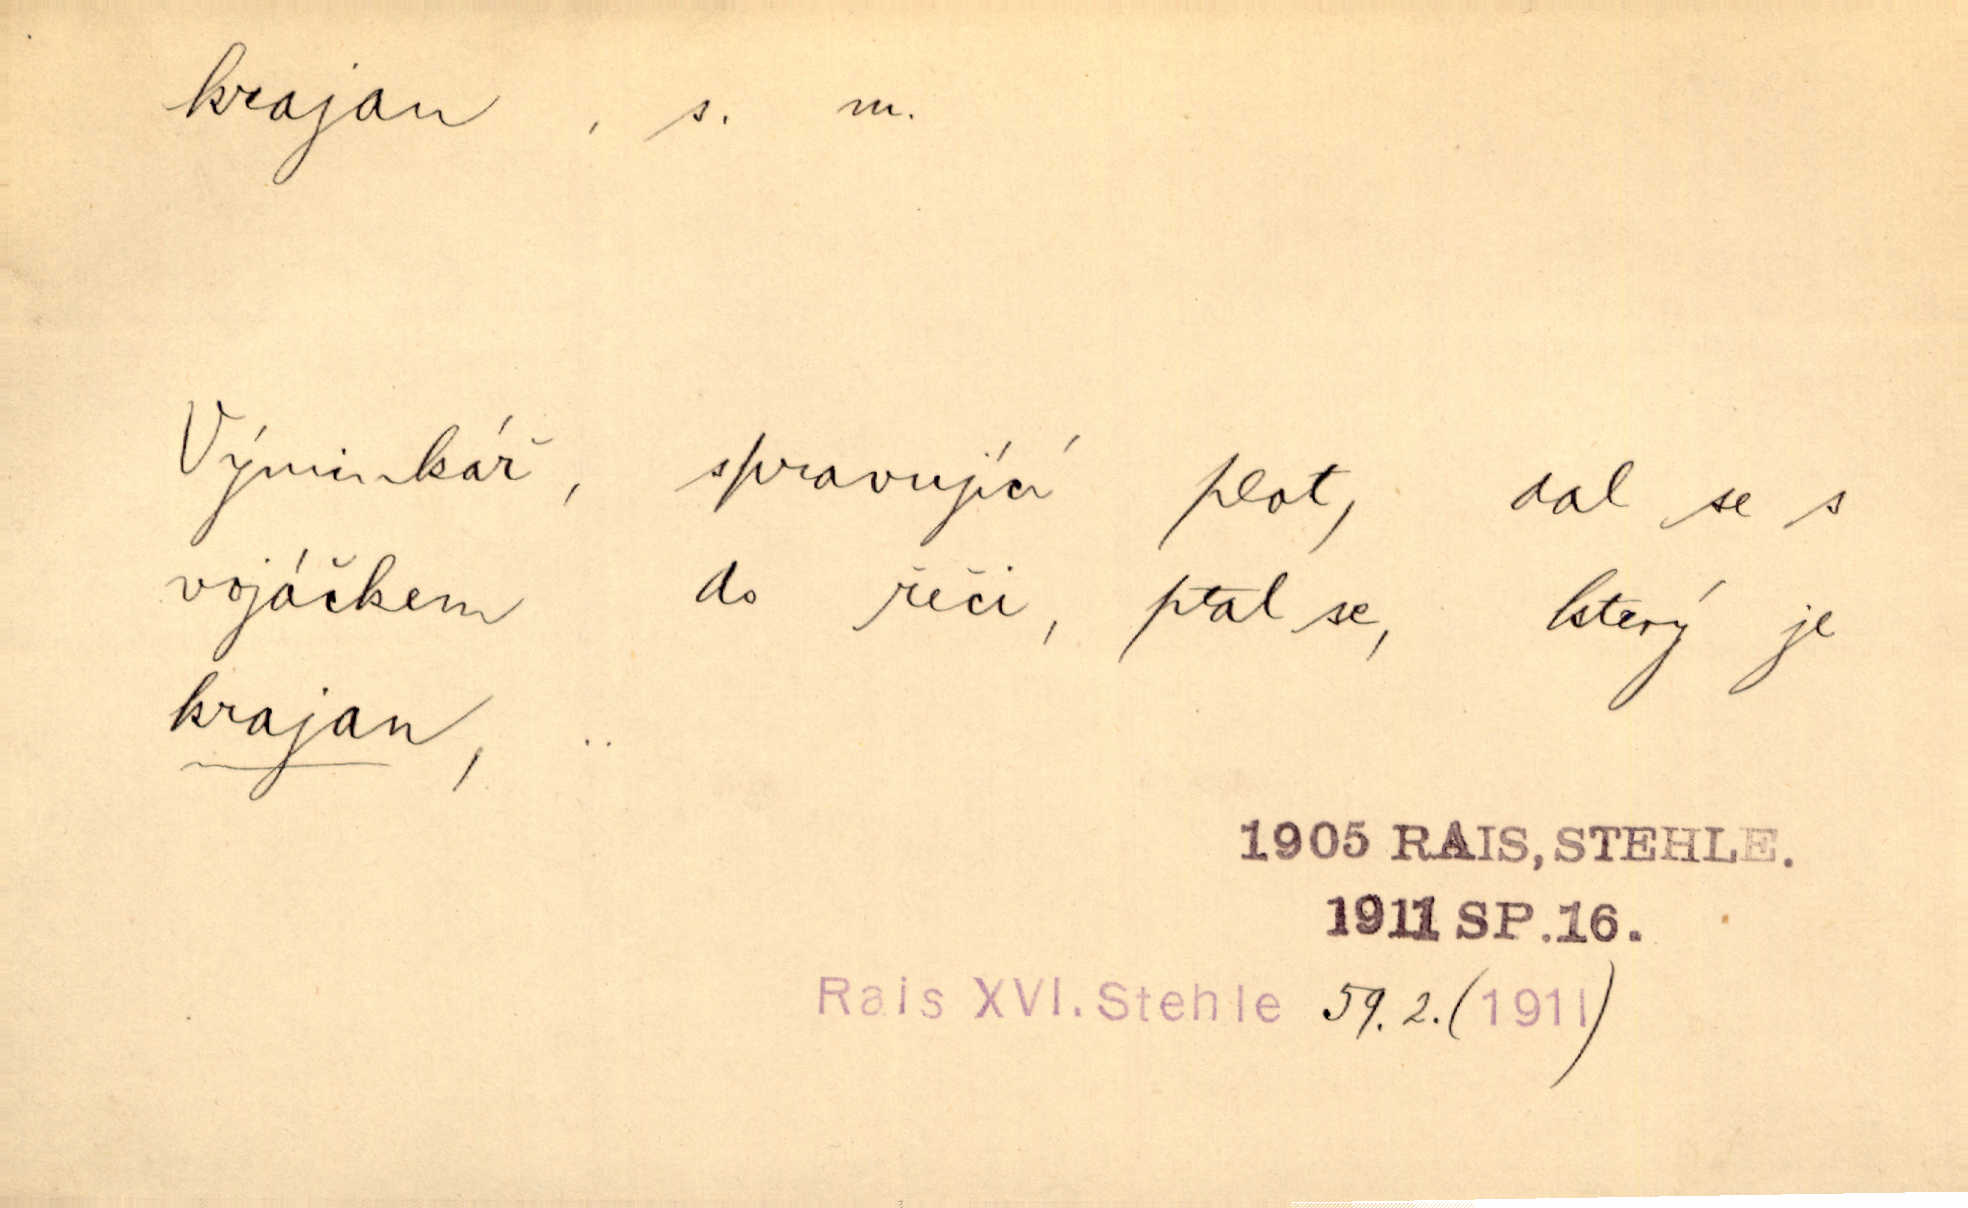 krajan, s. m.
Výminkář, spravující plot, dal se s
vojáčkem do řeči, ptal se, který je
krajan, ..
1905 RAIS, STEHLE.
1911 SP. 16.
Rais XVI. Stehle 59. 2. (1911)